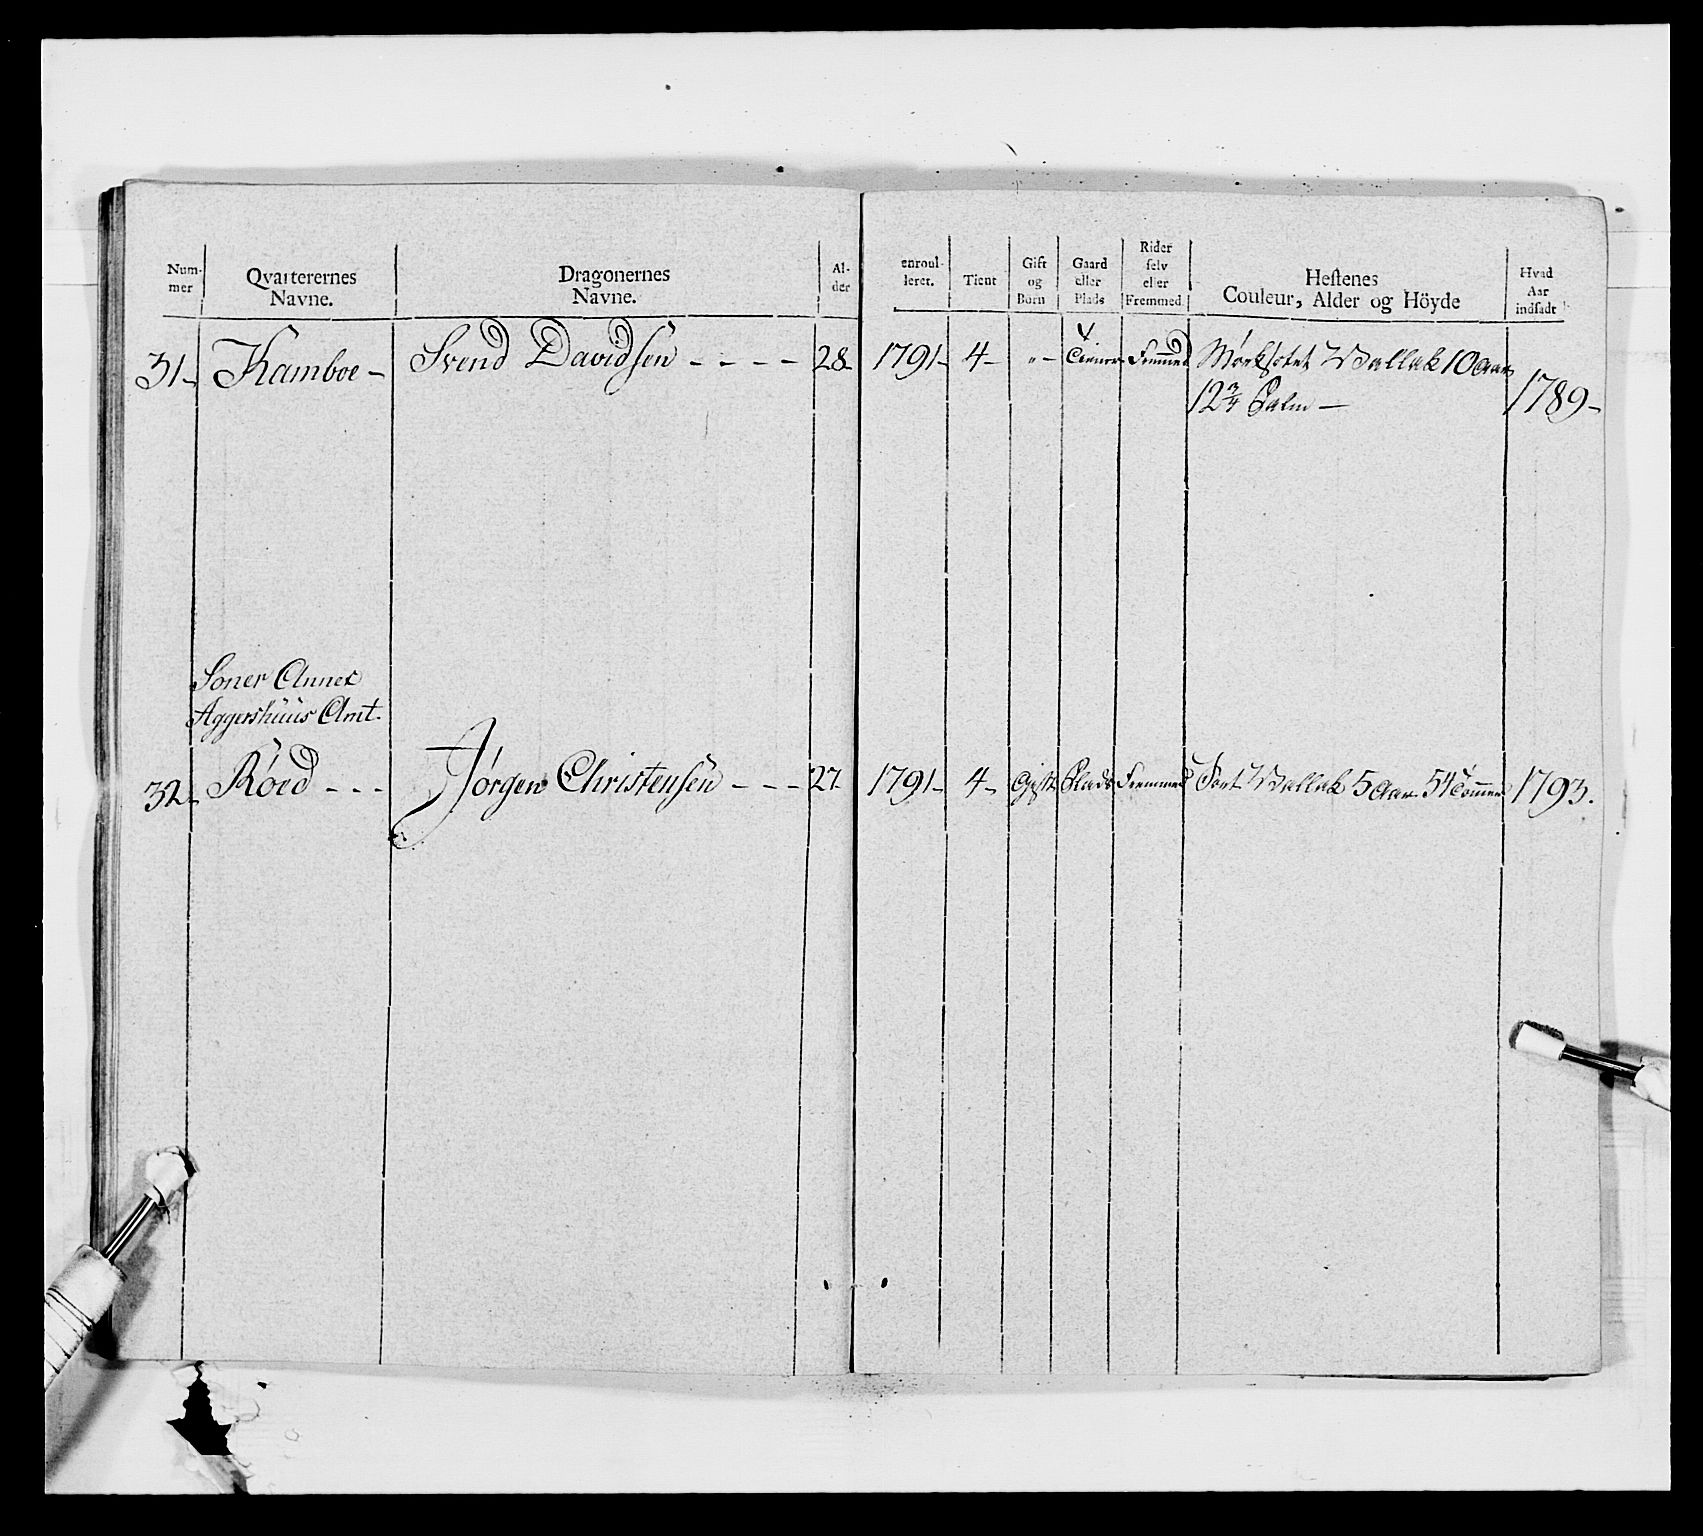 Num-
mer
Qvarterernes
Navne.
Dragonernes
Navne.
Al-
der
enroul-
leret.
Tient
Gift
og
Börn
Gaard
eller
Plads
Rider
selv
eller
Fremmed.
Hestenes
Couleur, Alder og Höyde
Hvad
Aar
indsadt
31- Kamboe- Svend Davidsen - - - - 28- 1791- 4- „- Tiener- Fremmed Mörksotet Wallak 10 Aar
12 3/4 Palm - 1789-
Soner Annex
Aggershuus Amt.
32- Röed - - - Jörgen Christensen - - - 27- 1791- 4- Gift Plads Fremmed Sort Wallak 5 Aar 54 Tommer 1793.